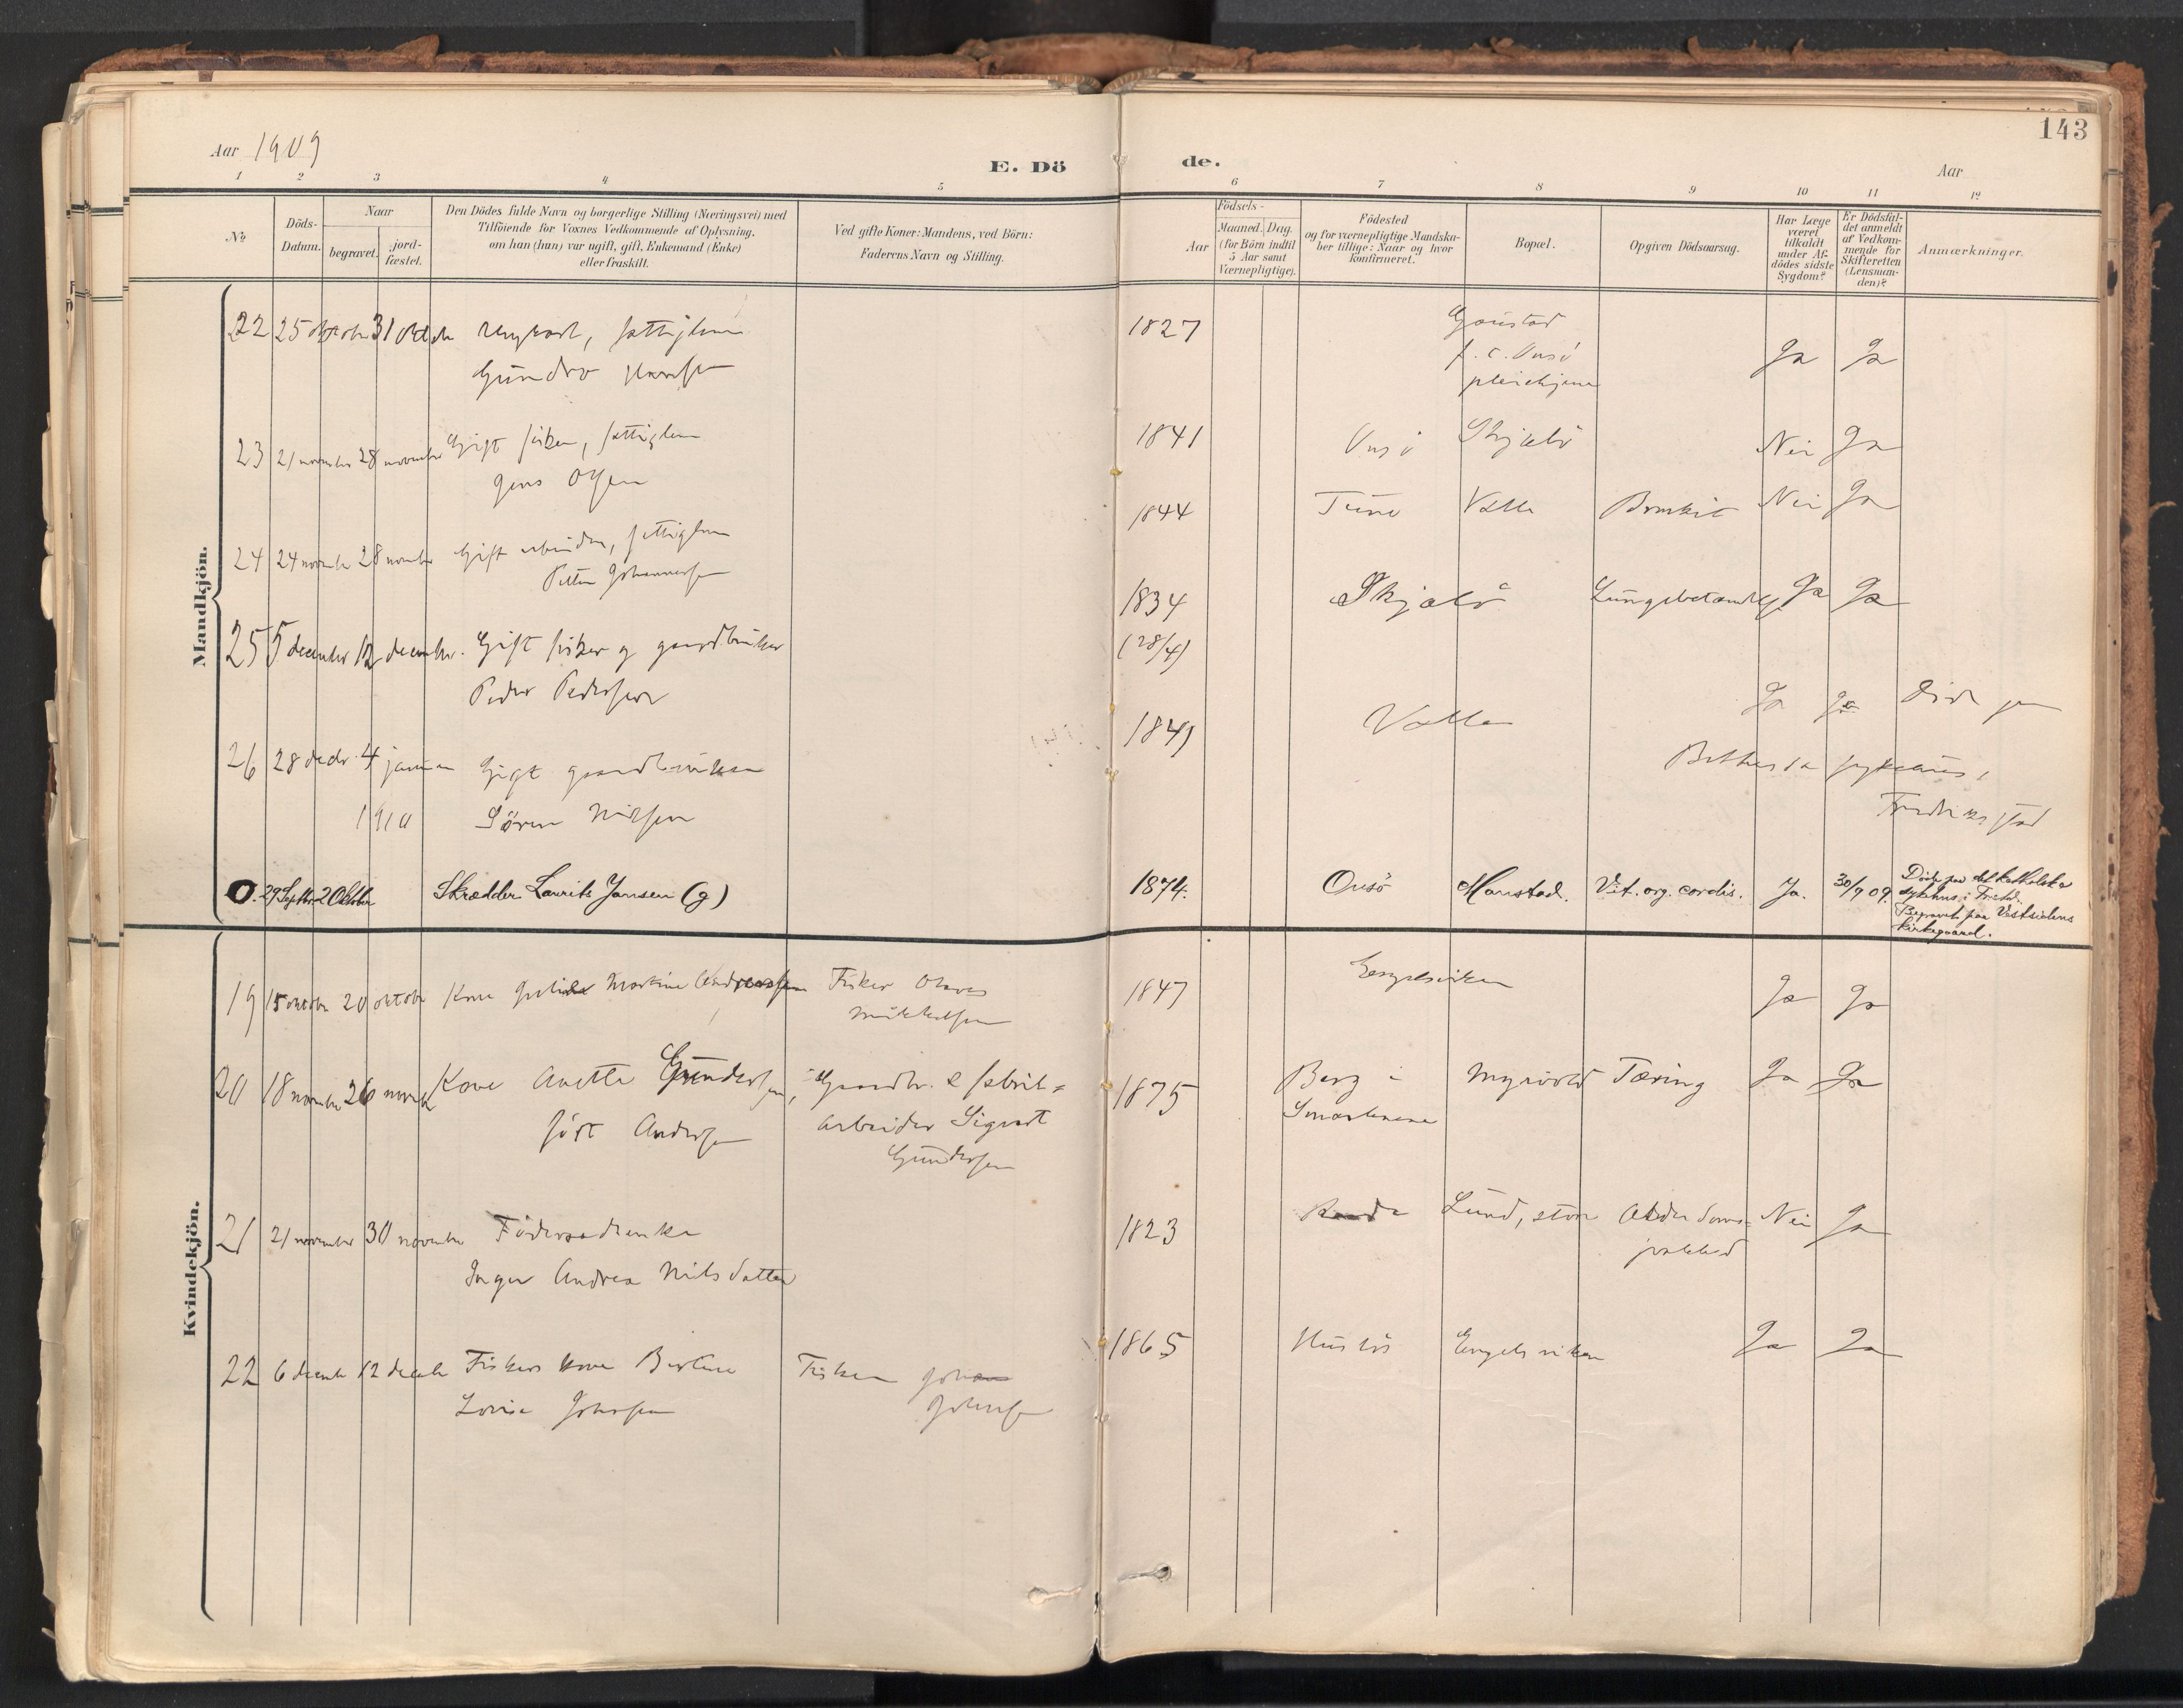 143
Aar 1909
E. Dö
de.
Aar
1 2 3 4 5 6 7 8 9 10 11 12
No
Döds-
Datum.
Naar
begravet.
jord-
fæstet.
Den Dödes fulde Navn og borgerlige Stilling (Næringsvei) med
Tilföiende for Voxnes Vedkommende af Oplysning,
om han (hun) var ugift, gift, Enkemand (Enke)
eller fraskilt.
Ved gifte Koner: Mandens, ved Börn:
Faderens Navn og Stilling.
Födsels-
Aar
Maaned. Dag.
(for Börn indtil
5 Aar samt
Værnepligtige).
Födested
og for værnepligtige Mandska-
ber tillige: Naar og hvor
konfirmeret.
Bopæl.
Opgiven Dödsaarsag.
Har Læge
været
tilkaldt
under Af-
dödes sidste
Sygdom?
Er Dödsfal-
det anmeldt
af Vedkom-
mende for
Skifteretten
(Lensman-
den)?
Anmærkninger.
Mandkjön.
22 25 oktober 31 oktober 1827 Gaustad
Onsö Ja Ja
23 21 november 28 november Gift fisker, fattiglem 1841 Onsö Skjælö Nei Ja
Jens Olsen
24 24 november 28 november Gift arbeider, fattiglem 1844 Tune Valle Nei Ja
Petter Johannessen
25 5 december 12 december. Gift fisker og gaardbruker 1834 Skjælö Lungebetændelse Ja Ja
Peder Pedersen (28/4)
26 28 decbr 4 januar Gift gaardbruker 1841 Valle Ja Ja Död paa
1910 Sören Nilsen Bethesda sykehus,
Fredriksstad
0. 29 Septbr. 2 Oktober Skrædder Laurits Jansen (g) 1874. Onsö Manstad. Vit. org. cordis. Ja. 30/9 09. Döde paa det katholske
sykehus i Fr.stad.
Begravet paa Vestsidens
kirkegaard.
Kvindekjön.
19 15 oktober 20 oktober Kone Martine Andreassen Fisker Olaves 1847 Engelsviken Ja Ja
Mikkelsen
20 18 november 26 novbr Kone Anette Gundersen, Gaardbr. & fabrik= 1875 Berg i Myrvold Tæring Ja Ja
fört Andersen arbeider Sigvart Smaalenene
Gundersen
21 21 november 30 november Föderaadsenke 1823 Lund, store Alderdoms= Nei Ja
Inger Andrea Nilsdatter svakhed
22 6 decembr 12 decbr Fiskers kone Berthine Fisker Johan 1865 Huslös Engelsviken Ja Ja
Lovise Johnsen Johnsen